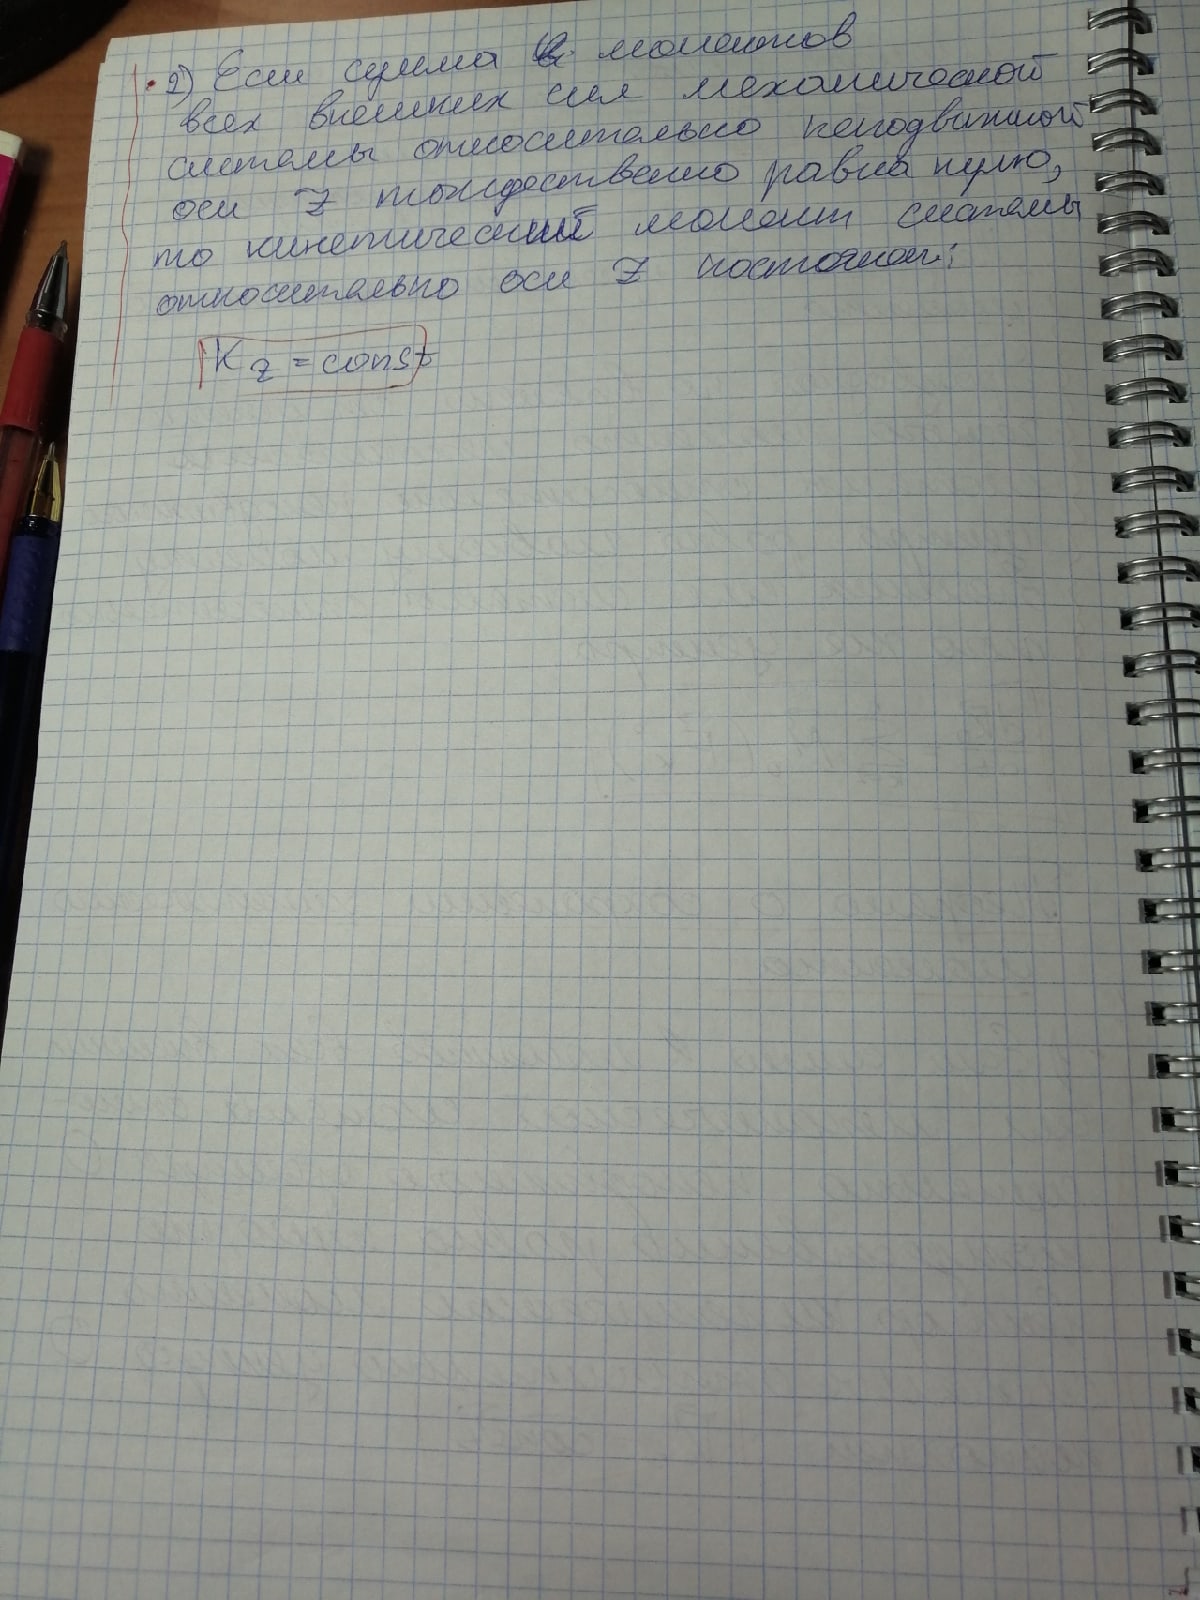 2) Если сумма моментов
всех внешних сил механической
системы относительно неподвижной
оси Z тождественно равна нулю,
то кинетический момент системы
относительно оси Z постоянен:
Kz = const